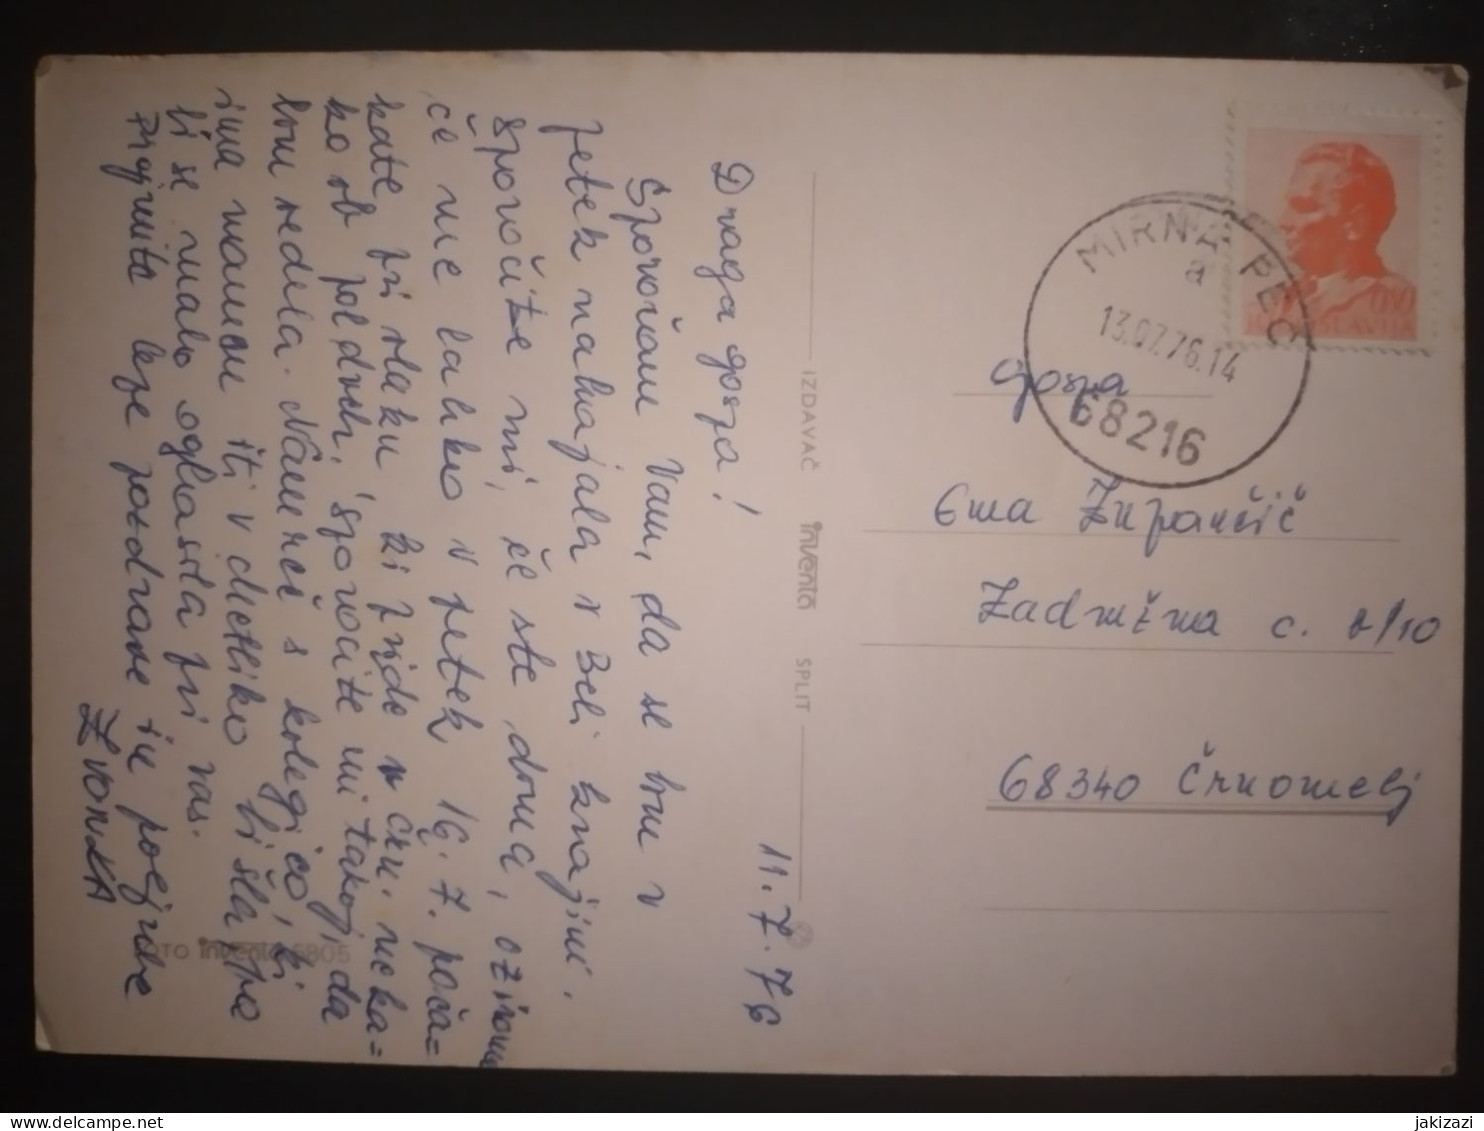 11.7.76
Draga gospa!
Sporočam Vam, da se bom v
petek nahajala v Beli krajini.
Sporočite mi, če ste doma, oziroma
če me lahko v petek 16.7. poča=
kate pri vlaku, ki pride v Črn. neka=
ko ob pol dveh, sporočite mi takoj, da
bom vedela. Namreč s kolegico, ki
ima namen iti v Metliko bi šla, pa
bi se malo oglasila pri vas.
Prejmite lepe pozdrave in poljube
Zvonka
FOTO inventa 6805
IZDAVAČ inventa SPLIT
JUGOSLAVIJA
MIRNA PEČ
a
13.07.76.14
68216
Gospa
Ema Župančič
Zadružna c. 2/10
68340 Črnomelj
jakizazi